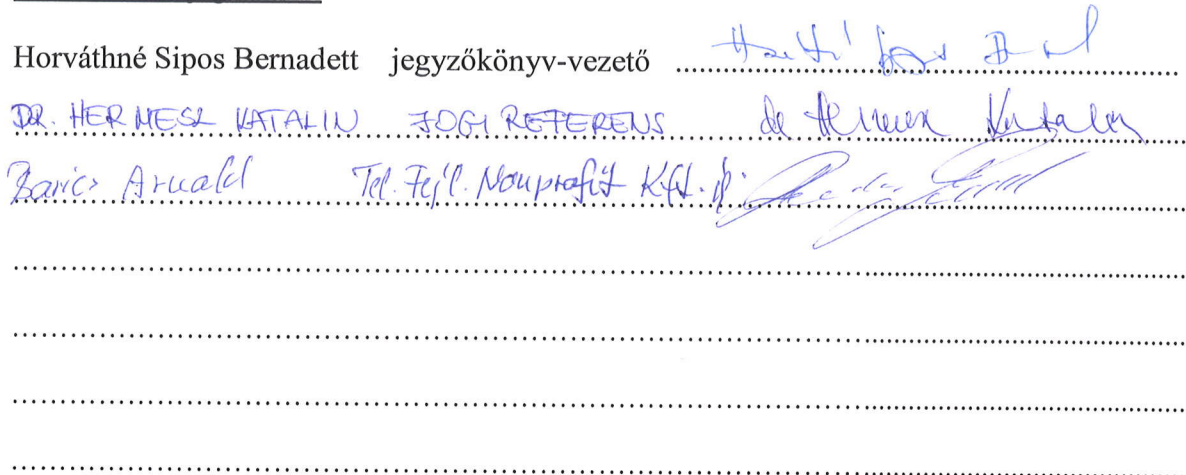 Horváthné Sipos Bernadett jegyzőkönyv-vezető
DR. HERMESZ KATALIN JOGI REFERENS dr Hermesz Katalin
Barics Arnald Tel. Fejl. Nonprofit Kft.